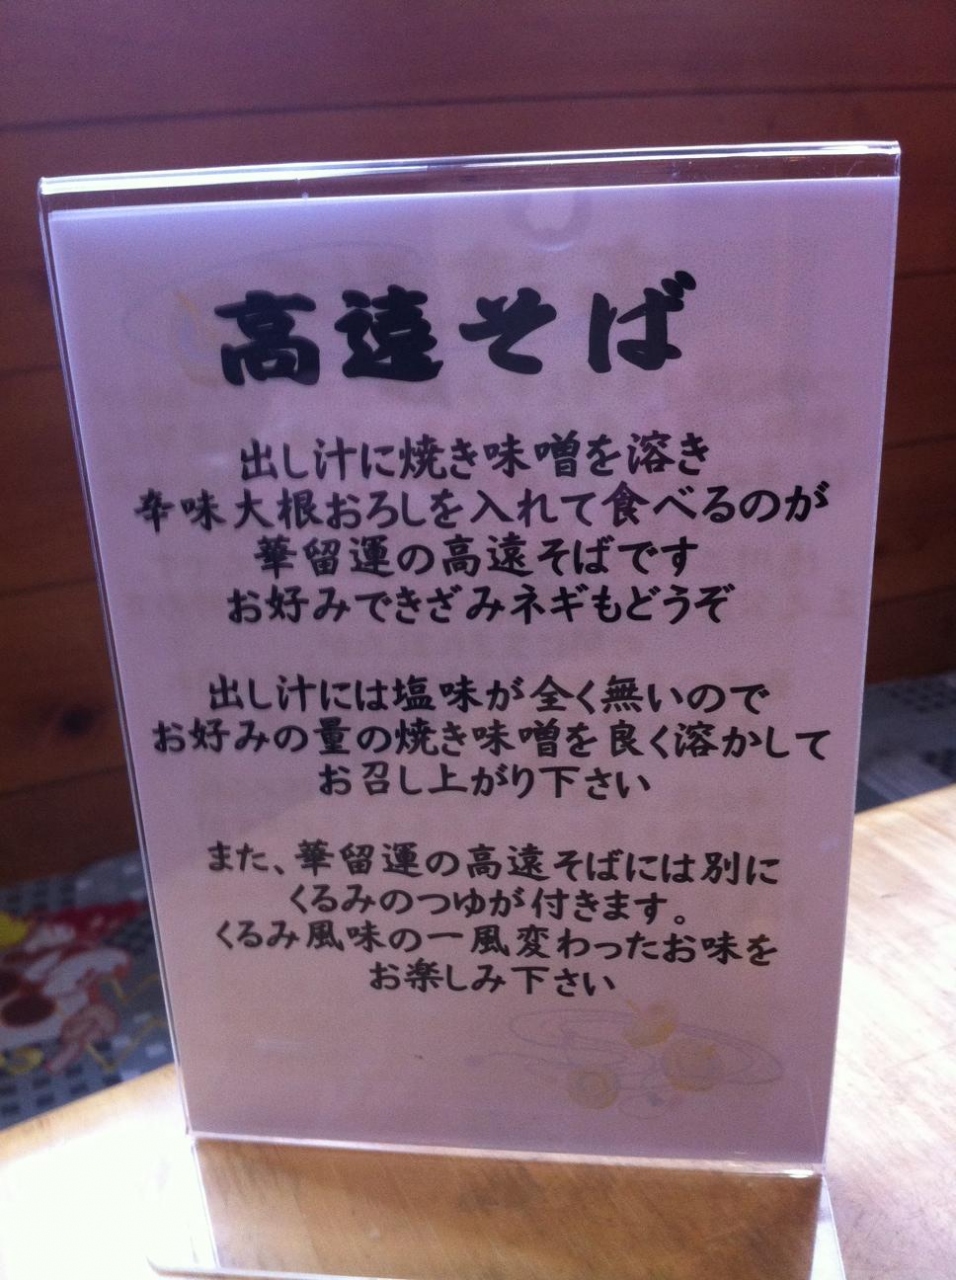 高遠そば
出し汁に焼き味噌を溶き
辛味大根おろしを入れて食べるのが
華留運の高遠そばです
お好みできざみネギもどうぞ
出し汁には塩味が全く無いので
お好みの量の焼き味噌を良く溶かして
お召し上がり下さい
また、華留運の高遠そばには別に
くるみのつゆが付きます。
くるみ風味の一風変わったお味を
お楽しみ下さい